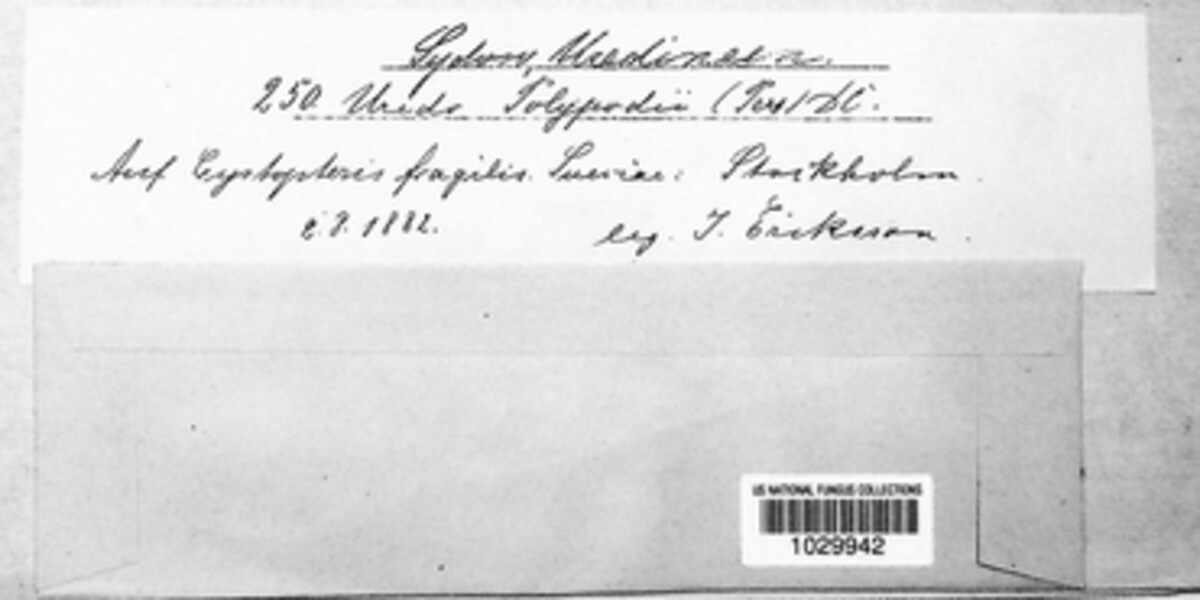 Sydow, Uredineen.
250. Uredo Polypodii (Pers) DC.
Auf Cystopteris fragilis. Sueciae: Stockholm.
8. 1882. leg. J. Eriksson.
US NATIONAL FUNGUS COLLECTIONS
1029942